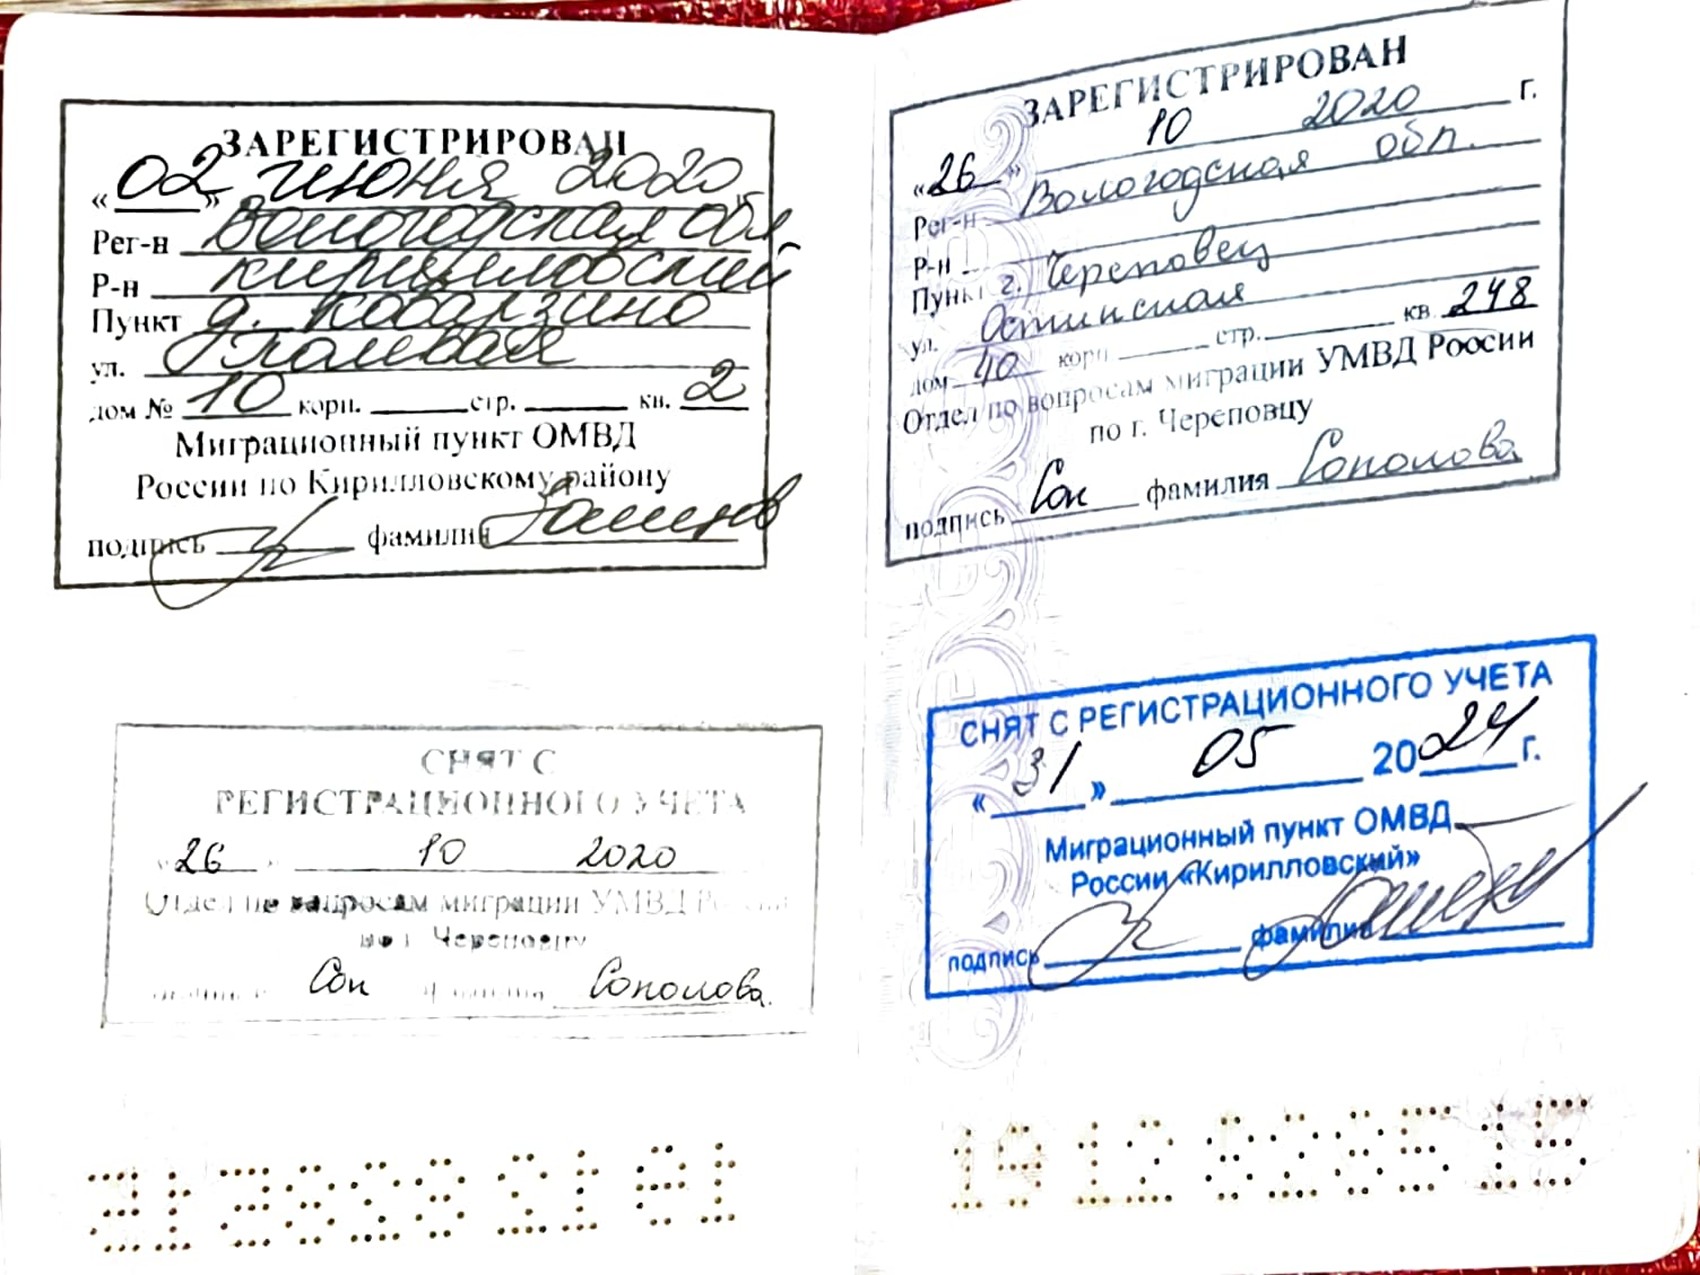 ЗАРЕГИСТРИРОВАН
«02» июня 2020
Рег-н Вологодская обл.
Р-н Кирилловский
Пункт д. Коварзино
ул. Полевая
дом № 10 корп. стр. кв. 2
Миграционный пункт ОМВД
России по Кирилловскому району
подпись фамилия
СНЯТ С
РЕГИСТРАЦИОННОГО УЧЕТА
«26» 10 2020
Отдел по вопросам миграции УМВД России
по г. Череповцу
подпись Сок фамилия Соколова
ЗАРЕГИСТРИРОВАН
«26» 10 2020 г.
Рег-н Вологодская обл.
Р-н
Пункт г. Череповец
ул. Остинская
дом 40 корп стр. кв. 248
Отдел по вопросам миграции УМВД России
по г. Череповцу
подпись Сок фамилия Соколова
СНЯТ С РЕГИСТРАЦИОННОГО УЧЕТА
«31» 05 2024 г.
Миграционный пункт ОМВД
России «Кирилловский»
подпись фамилия
19 12 828515